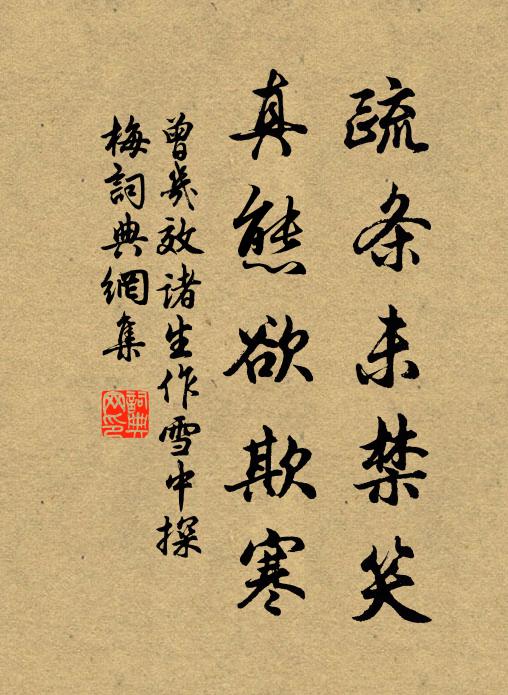 疏条未禁笑
真態欲欺寒
曾㡬效诸生作雪中探
梅詞典網集
詞典
网印